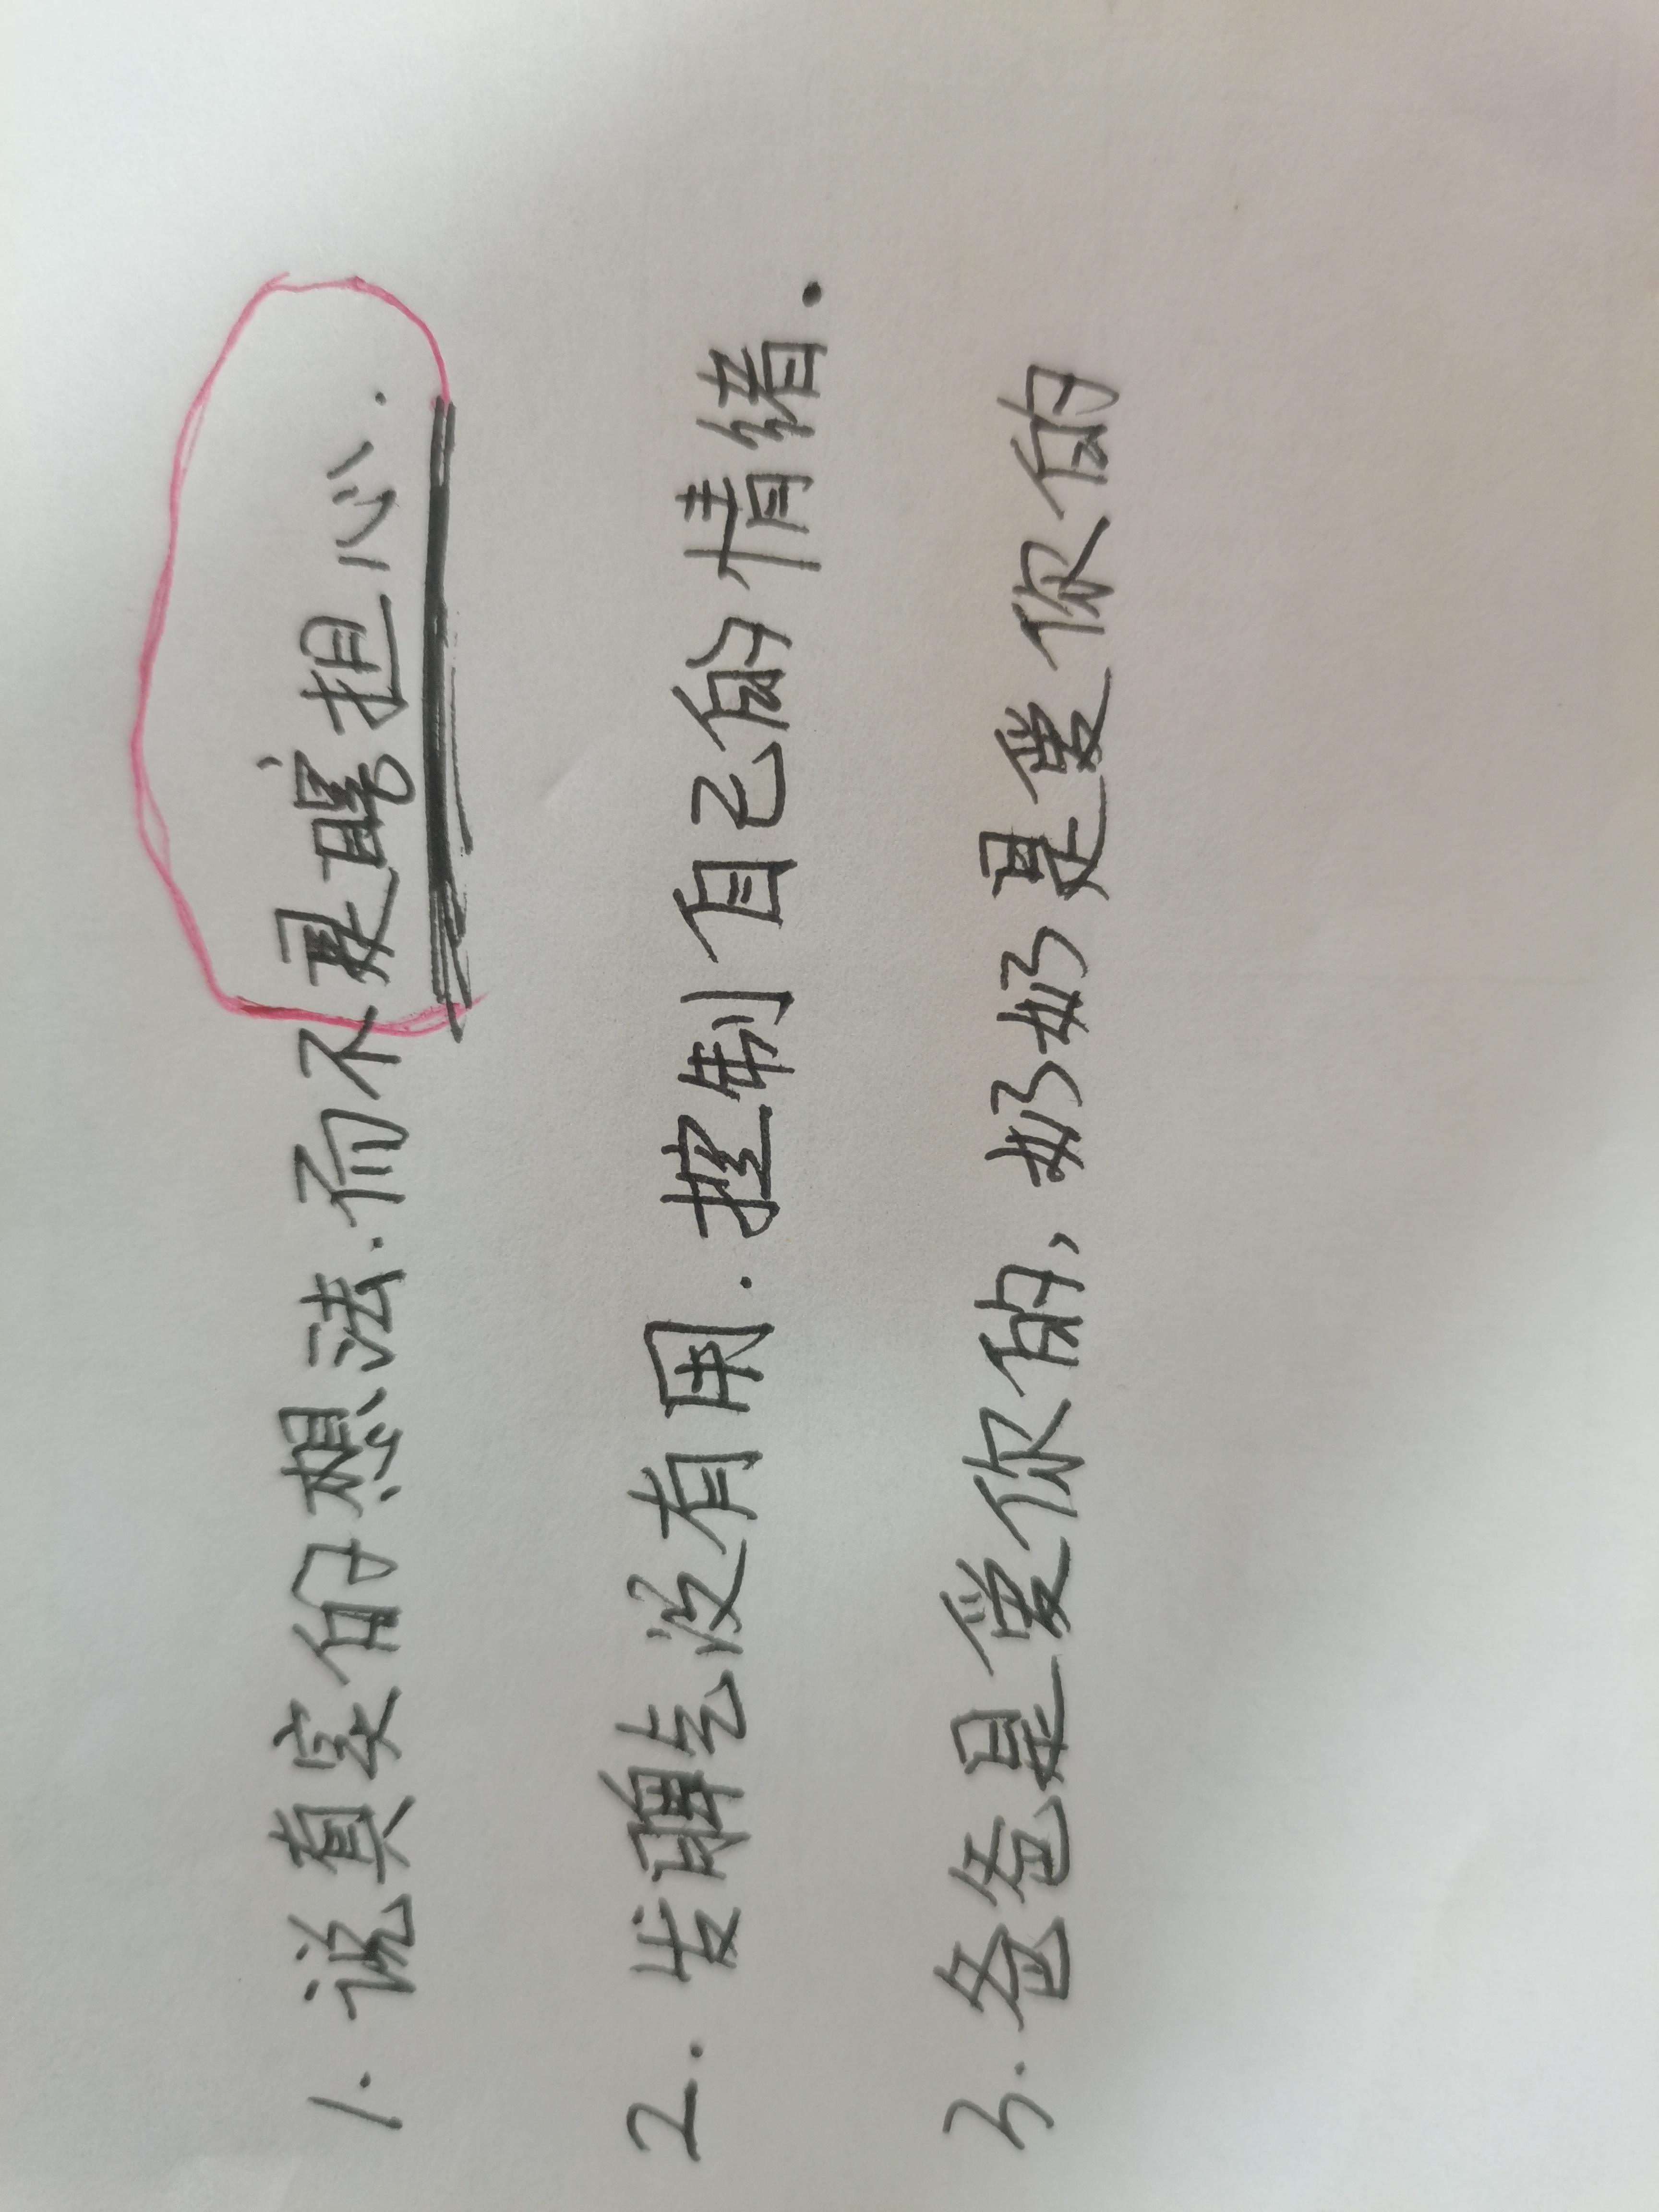 1. 说真实的想法.而不是瞎担心.
2. 发脾气没有用.控制自己的情绪.
3. 爸爸是爱你的,奶奶是爱你的